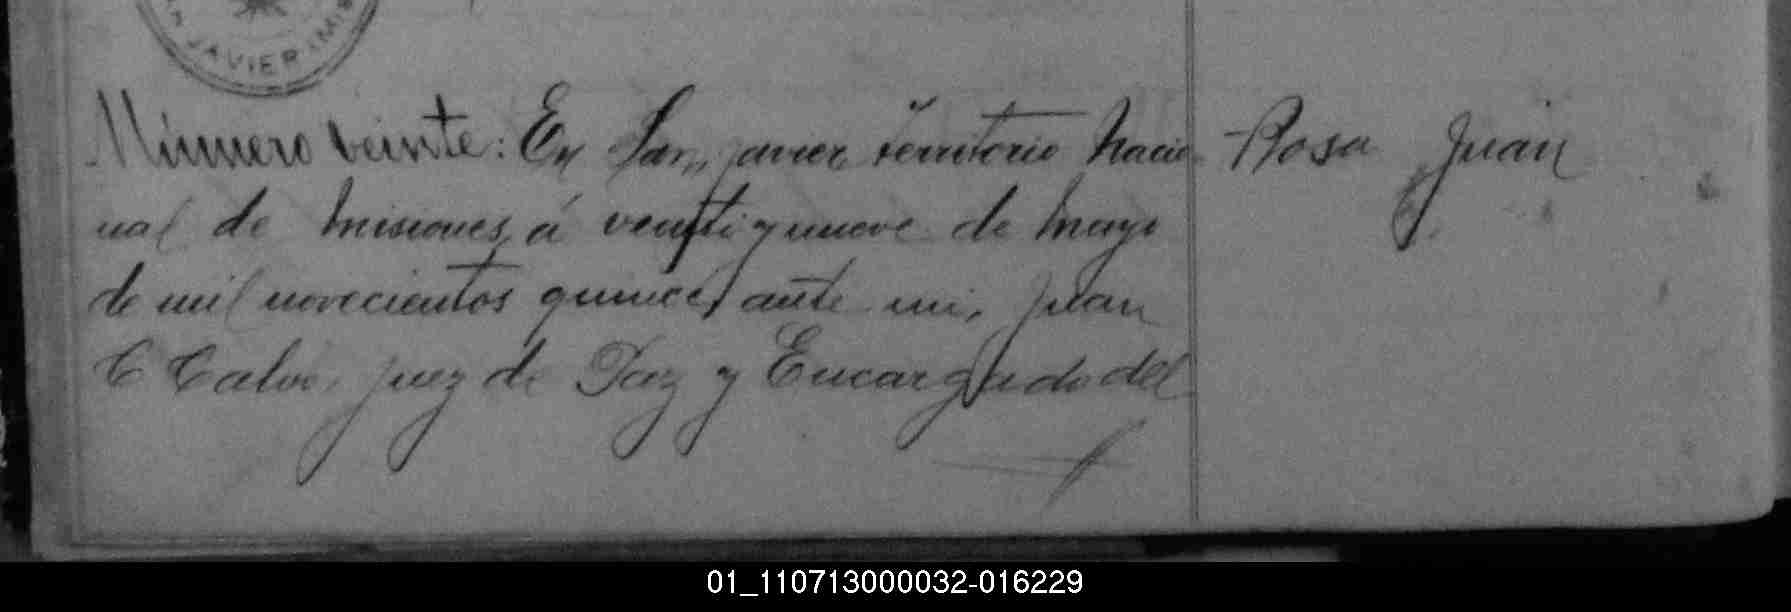 N JAVIER (MIS
Número veinte: En San Javier territorio Nacio
nal de Misiones, á veintiynueve de Mayo
de mil novecientos quince, ante mi, Juan
C Calvo, juez de Paz y Encargado del
Rosa Juan
01_110713000032-016229